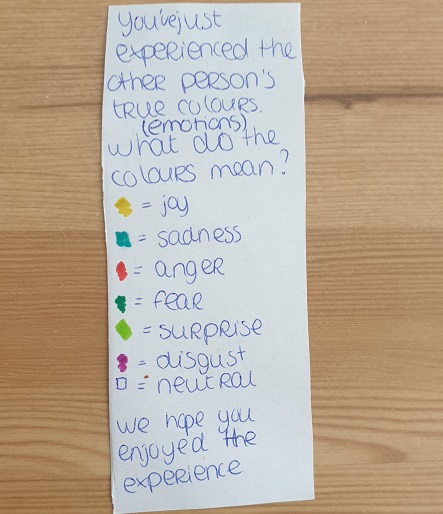 You've just
experienced the
other person's
true colours.
(emotions)
what do the
colours mean?
= joy
= sadness
= anger
= fear
= surprise
= disgust
= neutral
we hope you
enjoyed the
experience